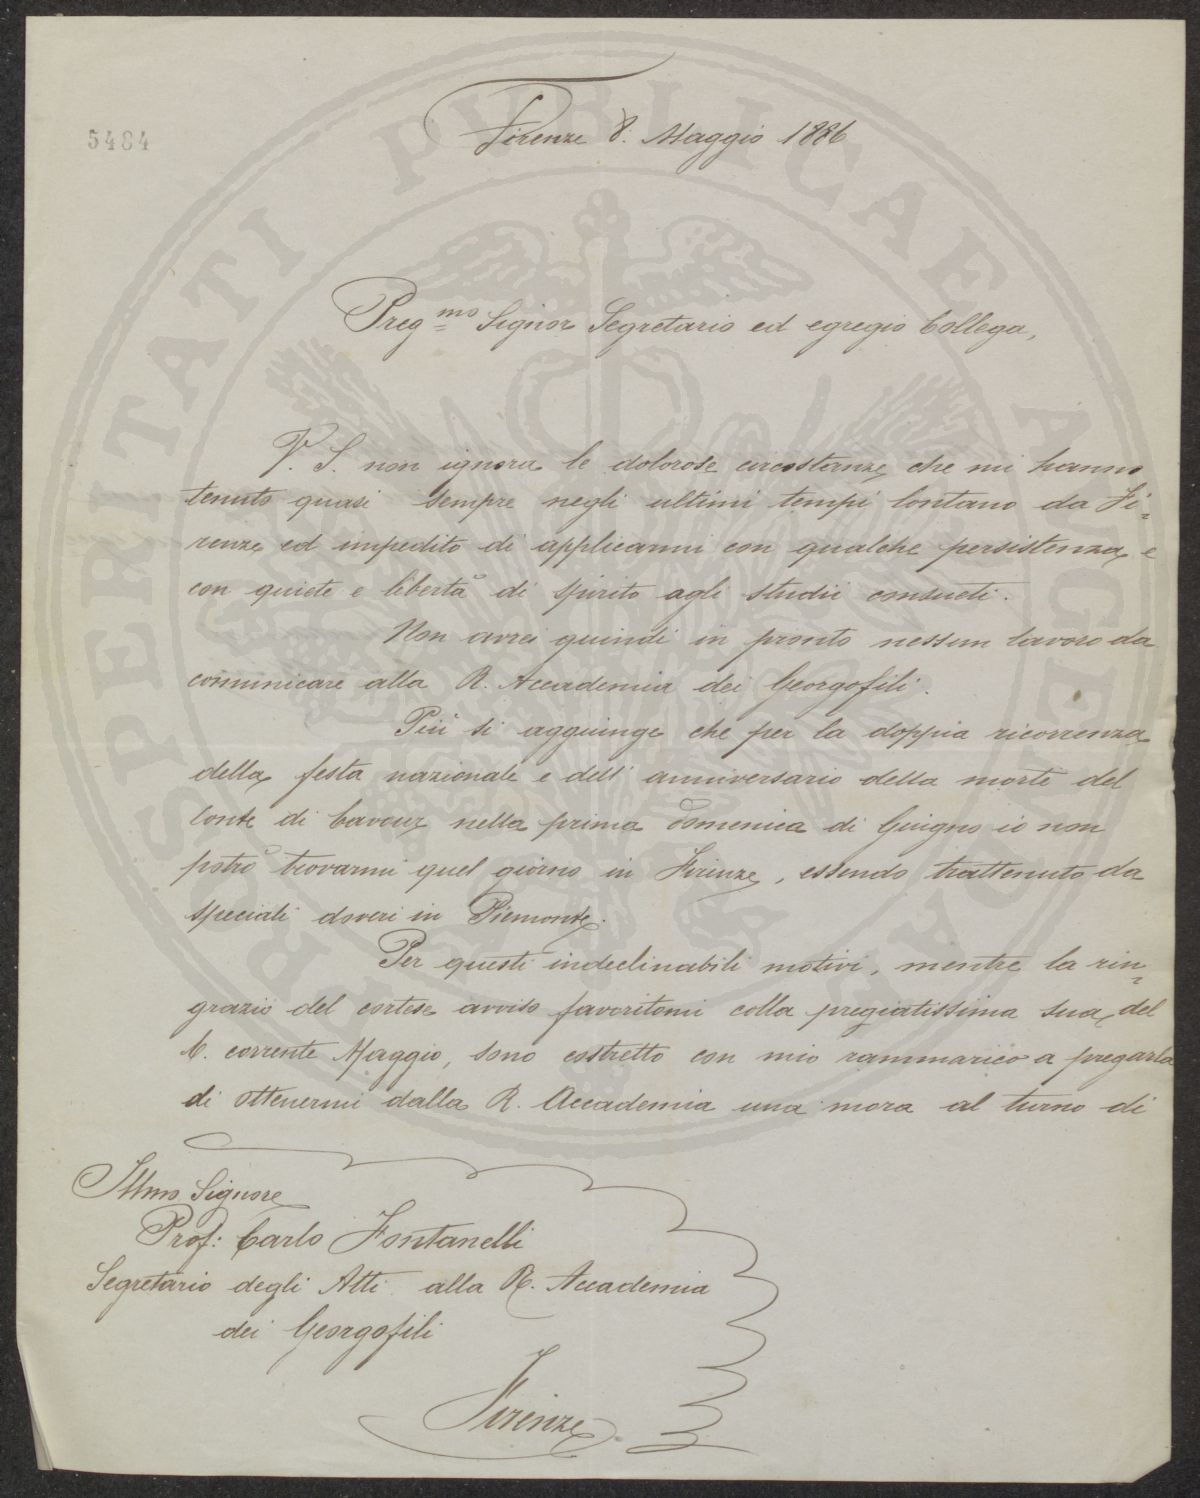 PROSPERITATI PUBLICAE AUGENDAE
5484
Firenze 8. Maggio 1886
Preg.mo Signor Segretario ed egregio Collega,
V. S. non ignora le dolorose circostanze che mi hanno
tenuto quasi sempre negli ultimi tempi lontano da Fi=
renze ed impedito di applicarmi con qualche persistenza e
con quiete e libertà di spirito agli studii consueti.
Non avrei quindi in pronto nessun lavoro da
comunicare alla R. Accademia dei Georgofili.
Più si aggiunge che per la doppia ricorrenza
della festa nazionale e dell'anniversario della morte del
Conte di Cavour nella prima domenica di Giugno io non
potrò trovarmi quel giorno in Firenze, essendo trattenuto da
speciali doveri in Piemonte.
Per questi indeclinabili motivi, mentre la rin=
grazio del cortese avviso favoritomi colla pregiatissima sua del
6. corrente Maggio, sono costretto con mio rammarico a pregarla
di ottenermi dalla R. Accademia una mora al turno di
Illmo Signore
Prof: Carlo Fontanelli
Segretario degli Atti alla R. Accademia
dei Georgofili
Firenze.